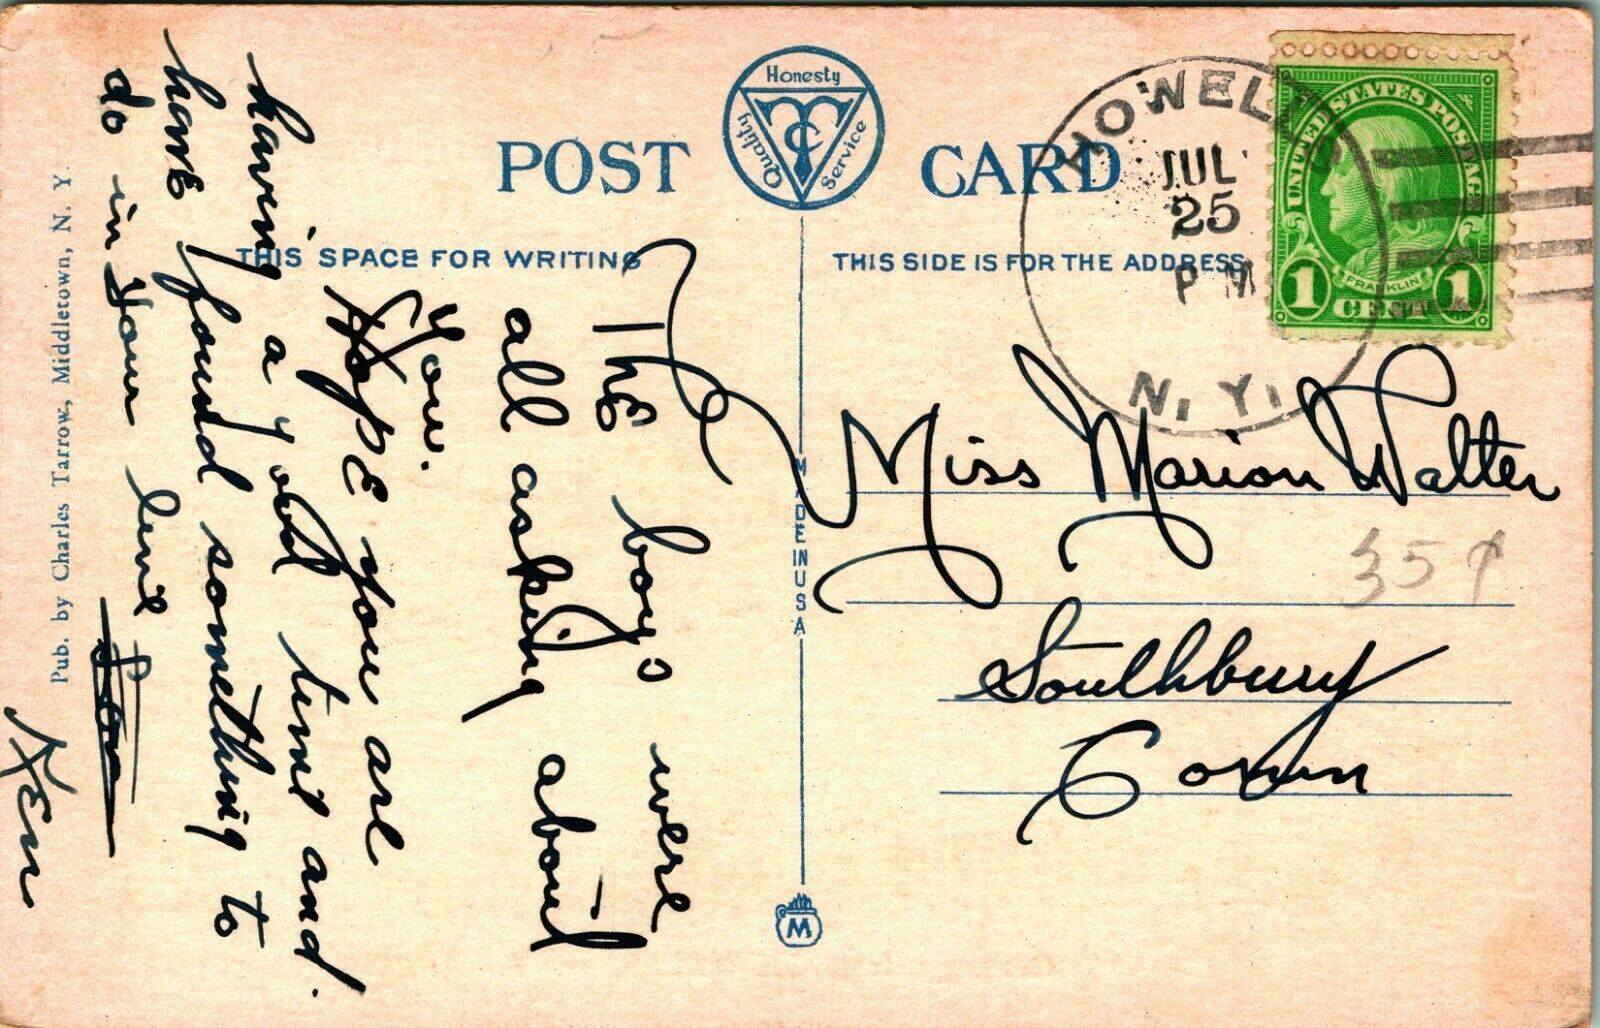 POST CARD
Honesty
Quality
Service
TC
THIS SPACE FOR WRITING
THIS SIDE IS FOR THE ADDRESS
HOWELLS
JUL
25
PM
N. Y.
UNITED STATES POSTAGE
FRANKLIN
1 CENT 1
The boys were
all asking about
you.
Hope you are
having a good time and
have found something to
do in your line
Ken
Miss Marion Walter
35¢
Southbury
Conn
MADE IN USA
M
Pub. by Charles Tarrow, Middletown, N. Y.